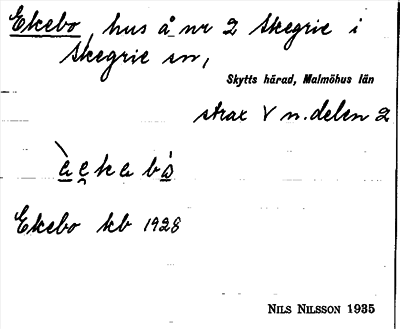 Ekebo, hus å nr 2 Skegrie i
Skegrie sn,
Skytts härad, Malmöhus län
strax V n. delen 2
Ekebo kb 1928
NILS NILSSON 1935